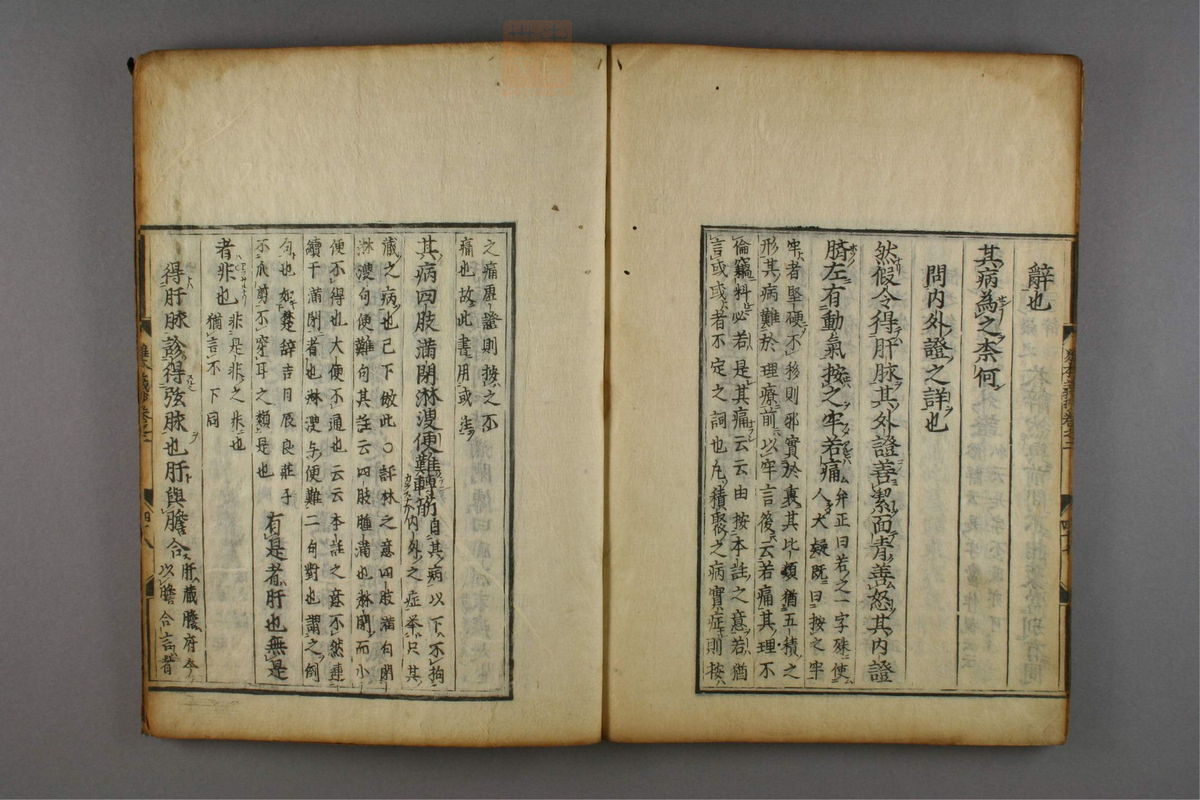 辭也
其病為之柰何
問内外證之詳也
然假令得肝脉其外證善絜面青善怒其内證
臍左有動氣按之牢若痛弁正曰若之一字殊使人大疑既曰按之牢
牢者堅硬不移則邪實於裏其比類猶五積之
形其病難於理療前以牢言後云若痛其理不
倫竊料必若是其痛云云由按本註之意若猶
言或或者不定之詞也凡積聚之病實症則按
之痛虛證則按之不
痛也故此書用或字
其病四肢滿閉淋溲便難轉筋自其病以下不拘内外之症挙只其
儀之病也已下倣此〇許林之意四肢滿句閉
淋溲句便難句其註云四肢腫滿也淋閉而小
便不得也大便不通也云云本註之意不然連
續于滿閉者也淋溲与便難二句對也謂之倒
句也如楚辭吉日辰良莊子
不爪翦不穿耳之類是也
有是者肝也無是
者非也非是非之非也猶言不下同
得肝脉診得弦脉也肝與膽合肝藏膽府今以膽合言者